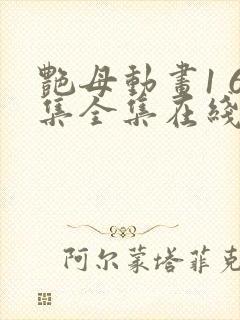 艷母動畫16
集全集在綫
阿尔蒙塔菲克